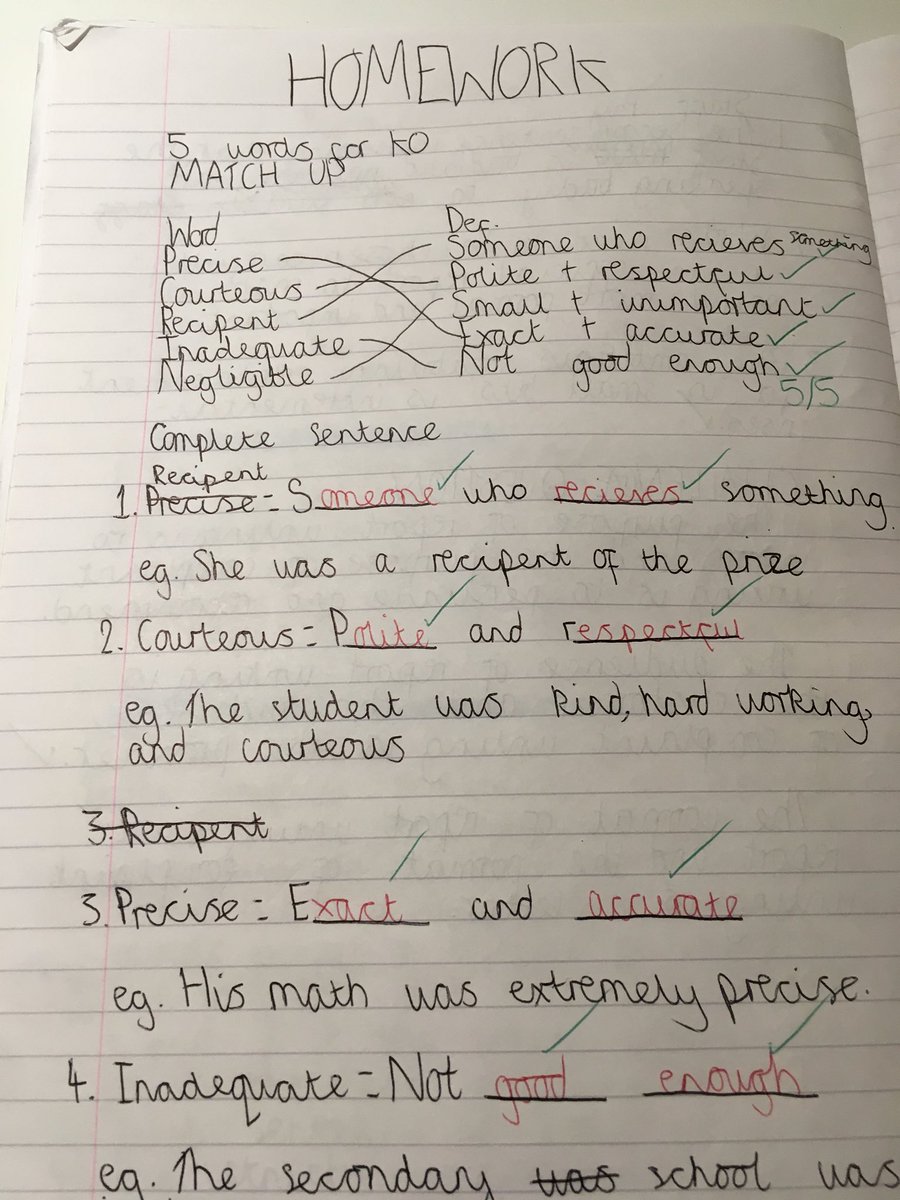 HOMEWORK
5 words for KO
MATCH UP
Word
Def.
Precise
Someone who recieves something
Courteous
Polite + respectful
Recipent
Small + unimportant
Inadequate
Exact + accurate
Negligible
Not good enough
5/5
Complete sentence
Recipent
1. Precise = Someone who recieves something.
eg. She was a recipent of the prize
2. Courteous = Polite and respectful
eg. The student was kind, hard working,
and courteous
3. Recipent
3. Precise = Exact and accurate
eg. His math was extremely precise.
4. Inadequate = Not good enough
eg. The seconday was school was